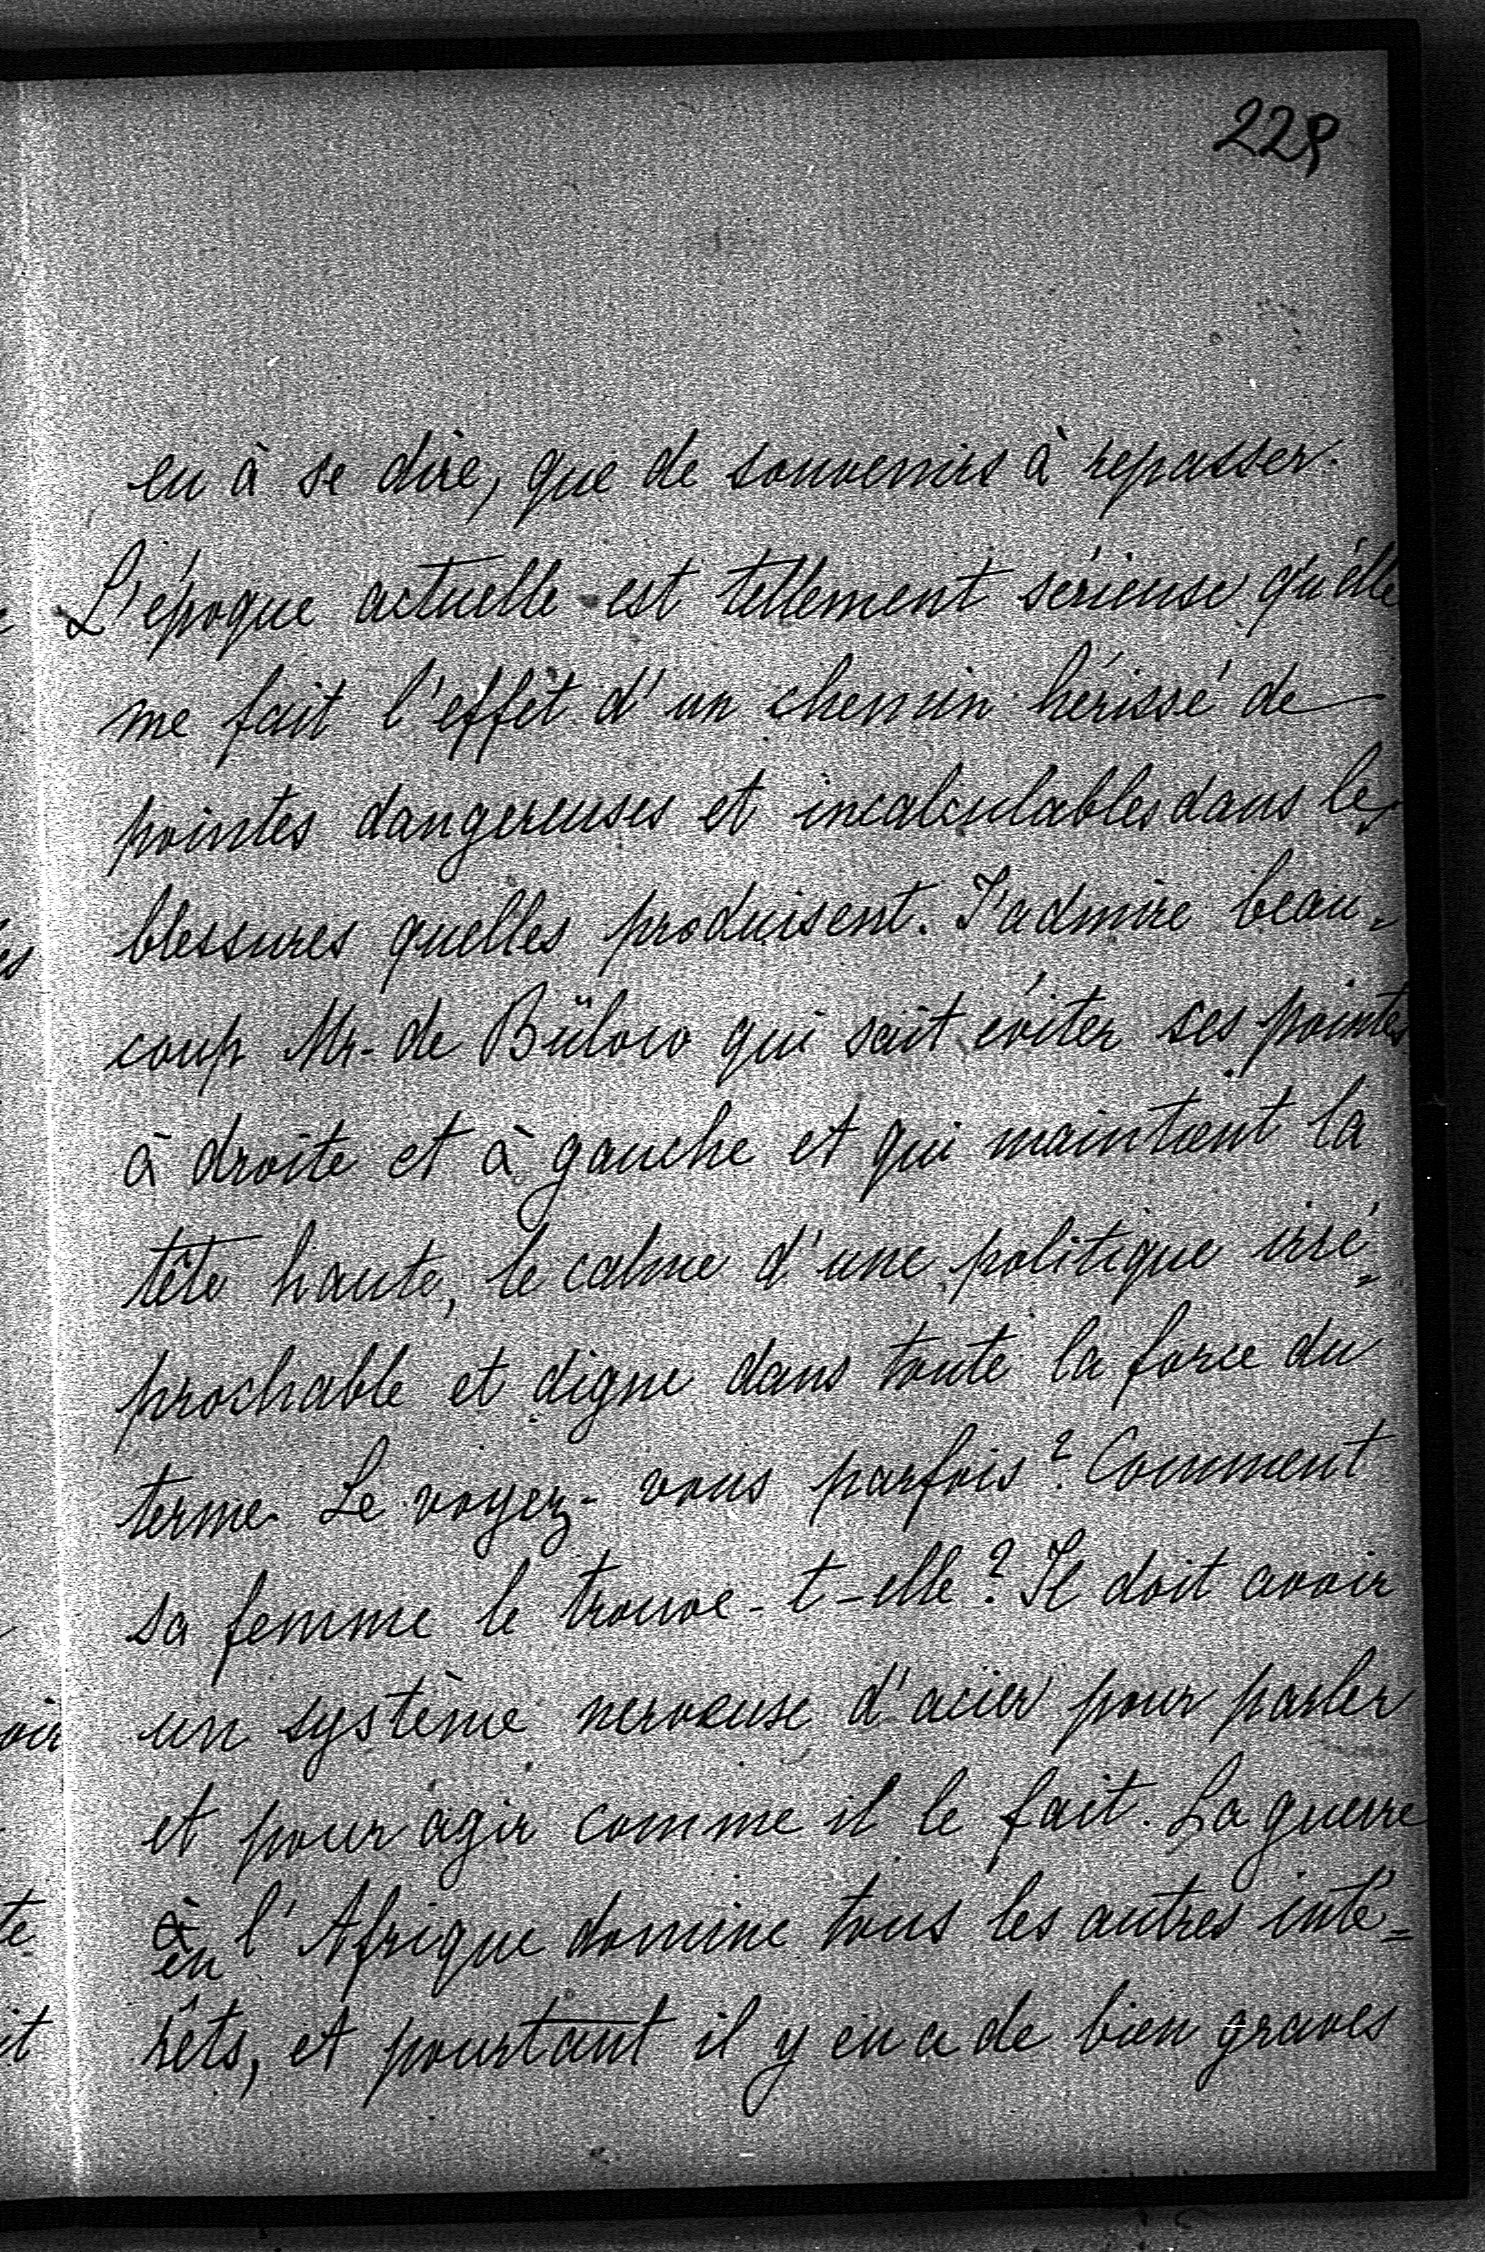 229
eu à se dire, que de souvenirs à repasser.
L'époque actuelle est tellement sérieuse qu'elle
me fait l'effet d'un chemin hérissé de
pointes dangereuses et incalculables dans les
blessures quelles produisent. J'admire beau-
coup Mr. de Bülow qui sait éviter ses pointes
à droite et à gauche et qui maintient la
tête haute, le calme d'une politique irré-
prochable et digne dans toute la force du
terme. Le voyez-vous parfois? Comment
sa femme le trouve-t-elle? Il doit avoir
un système nerveuse d'acier pour parler
et pour agir comme il le fait. La guerre
à l'Afrique domine tous les autres inté-
en
rêts, et pourtant il y en a de bien graves